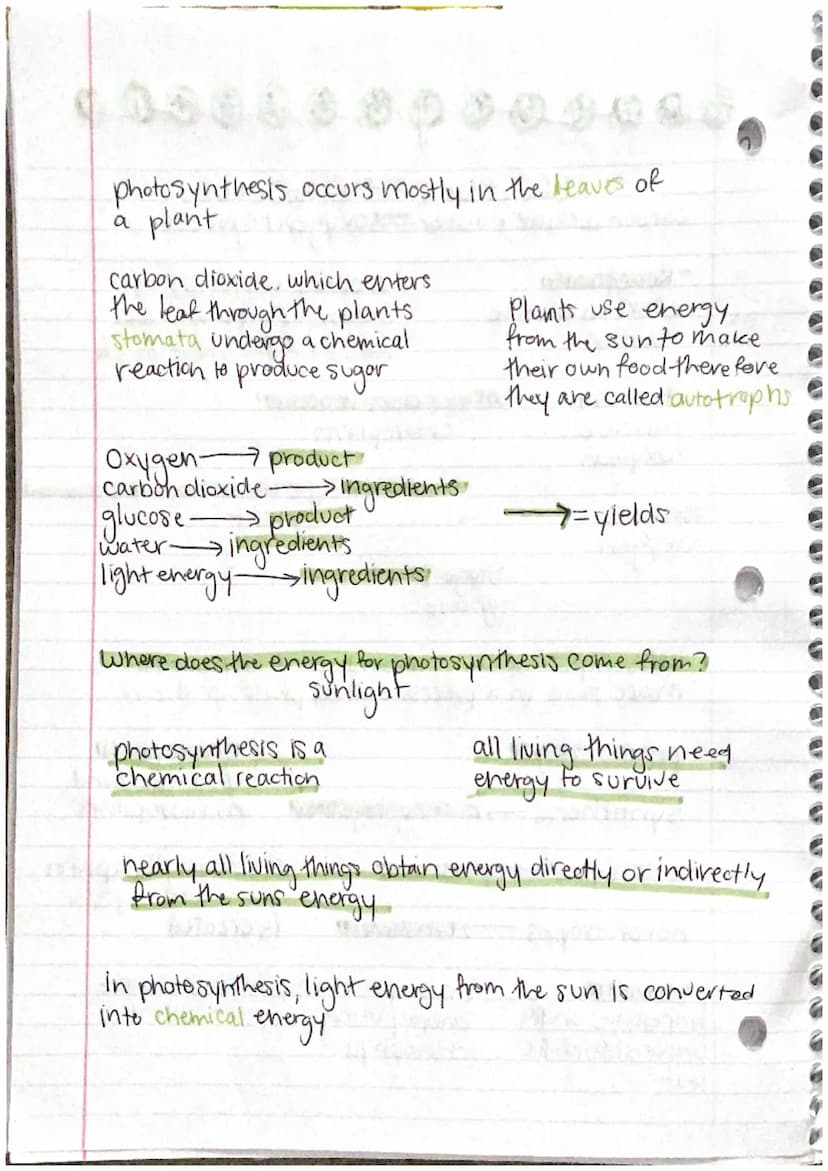 photosynthesis occurs mostly in the leaves of
a plant
carbon dioxide, which enters
the leaf through the plants
stomata undergo a chemical
reaction to produce sugar
Plants use energy
from the sun to make
their own food-therefore
they are called autotrophs
Oxygen → product
carbon dioxide → ingredients
glucose → product
water → ingredients
light energy → ingredients
→ = yields
Where does the energy for photosynthesis come from?
sunlight
photosynthesis is a
chemical reaction
all living things need
energy to survive
nearly all living things obtain energy directly or indirectly
from the suns energy
in photosynthesis, light energy from the sun is converted
into chemical energy